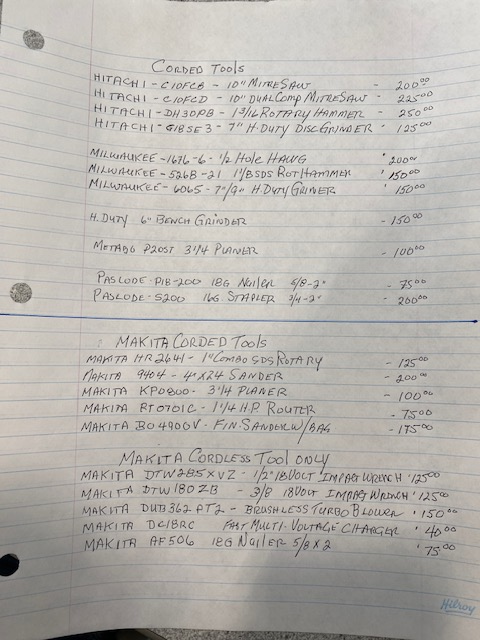 CORDED TOOLS
HITACHI - C10FCB - 10" MITRESAW - 200⁰⁰
HITACHI - C10FCD - 10" DUALCOMP MITRESAW - 225⁰⁰
HITACHI - DH30PB - 1 3/16 ROTARY HAMMER - 250⁰⁰
HITACHI - G18SE3 - 7" H.DUTY DISC GRINDER - 125⁰⁰
MILWAUKEE - 1676-6 - 1/2 HOLE HAWG - 200⁰⁰
MILWAUKEE - 5268-21 1 1/8 SDS ROT HAMMER - 150⁰⁰
MILWAUKEE - 6065 - 7"/9" H.DUTY GRINER - 150⁰⁰
H.DUTY 6" BENCH GRINDER - 150⁰⁰
METABO P20ST 3 1/4 PLANER - 100⁰⁰
PASLODE - P18-200 18G NAILER 5/8-2" - 75⁰⁰
PASLODE - S200 16G. STAPLER 3/4-2" - 200⁰⁰
MAKITA CORDED TOOLS
MAKITA HR2641 - 1" COMBO SDS ROTARY - 125⁰⁰
MAKITA 9404 - 4"X24 SANDER - 200⁰⁰
MAKITA KP0800 - 3 1/4 PLANER - 100⁰⁰
MAKITA RT0701C - 1 1/4 H.P. ROUTER - 75⁰⁰
MAKITA BO4900V - FIN. SANDER W/BAG - 175⁰⁰
MAKITA CORDLESS TOOL ONLY
MAKITA DTW285XVZ - 1/2" 18VOLT IMPART WRENCH - 125⁰⁰
MAKITA DTW180ZB - 3/8 18VOLT IMPART WRENCH - 125⁰⁰
MAKITA DUB362PT2 - BRUSHLESS TURBO BLOWER - 150⁰⁰
MAKITA DC18RC FAST MULTI-VOLTAGE CHARGER - 40⁰⁰
MAKITA AF506 18G NAILER 5/8 X 2 - 75⁰⁰
Hilroy